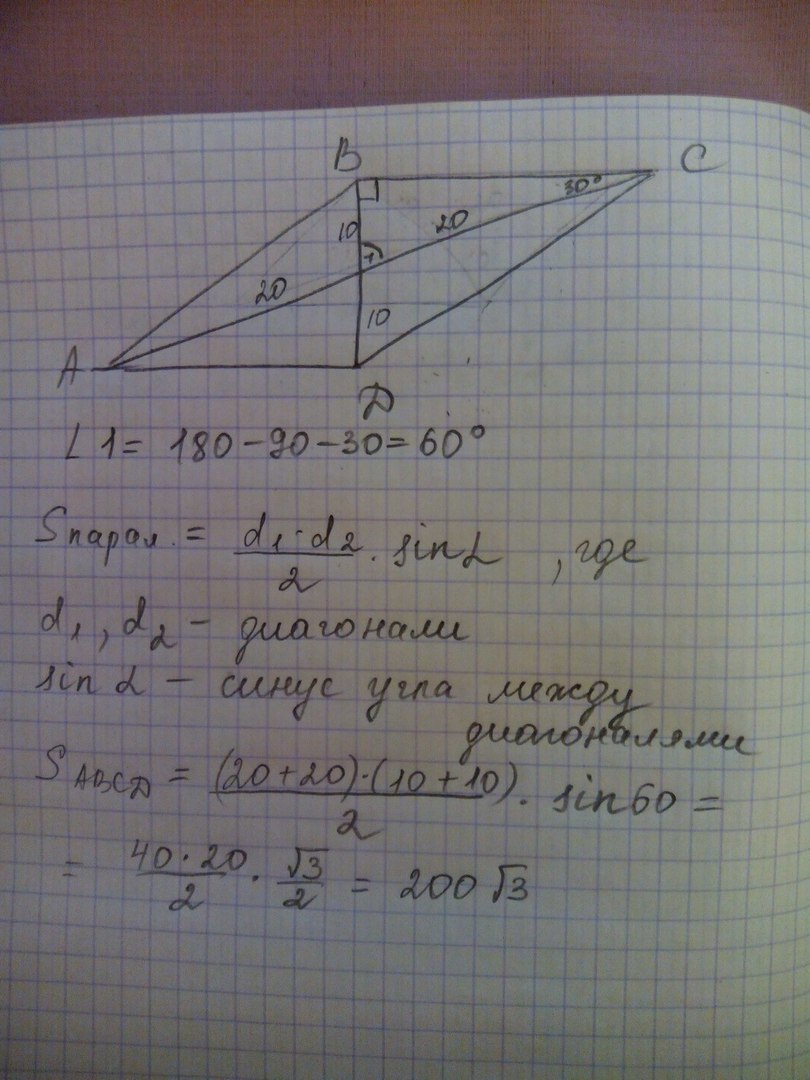 B
C
30°
10
20
1
20
10
A
D
∠1 = 180 - 90 - 30 = 60°
Sпарал. = d₁·d₂/2 · sin α , где
d₁, d₂ - диагонали
sin α - синус угла между
диагоналями
S ABCD = (20+20)·(10+10)/2 · sin60 =
= 40·20/2 · √3/2 = 200√3